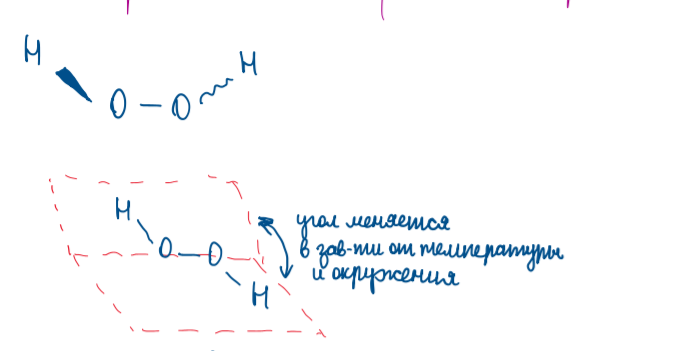 H
H
O — O
H
O — O
H
угол меняется
в зав-ти от температуры
и окружения